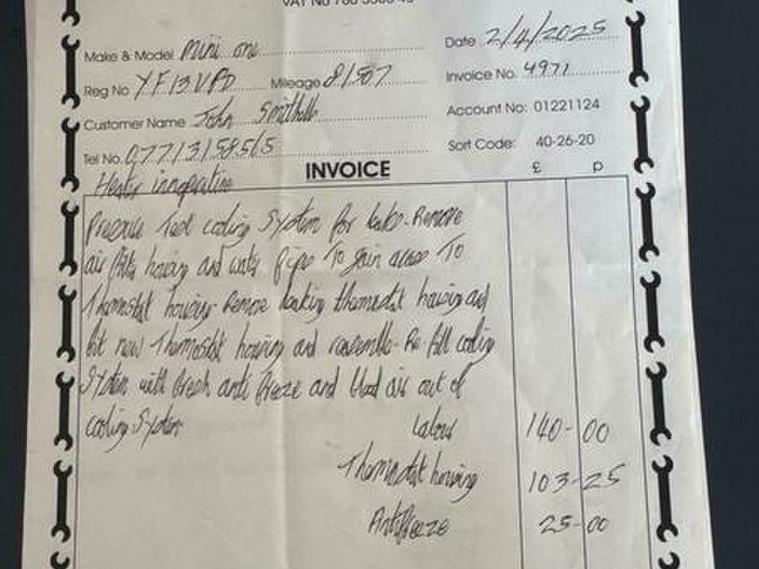 VAT No
Make & Model Mini one Date 2/4/2025
Reg No YF13VPD Mileage 81507 Invoice No. 4971
Customer Name John Account No: 01221124
Tel No. 07713158565 Sort Code: 40-26-20
INVOICE £ p
Heater innoperative
Pressure Test cooling system for leaks. Remove
air filter housing and water pipe To gain access To
Thermostat housing. Remove leaking thermostat housing and
fit new Thermostat housing and reassemble. Re-fill cooling
System with fresh anti freeze and bleed air out of
cooling System
Labour 140-00
Thermostat housing 103-25
Antifreeze 25-00